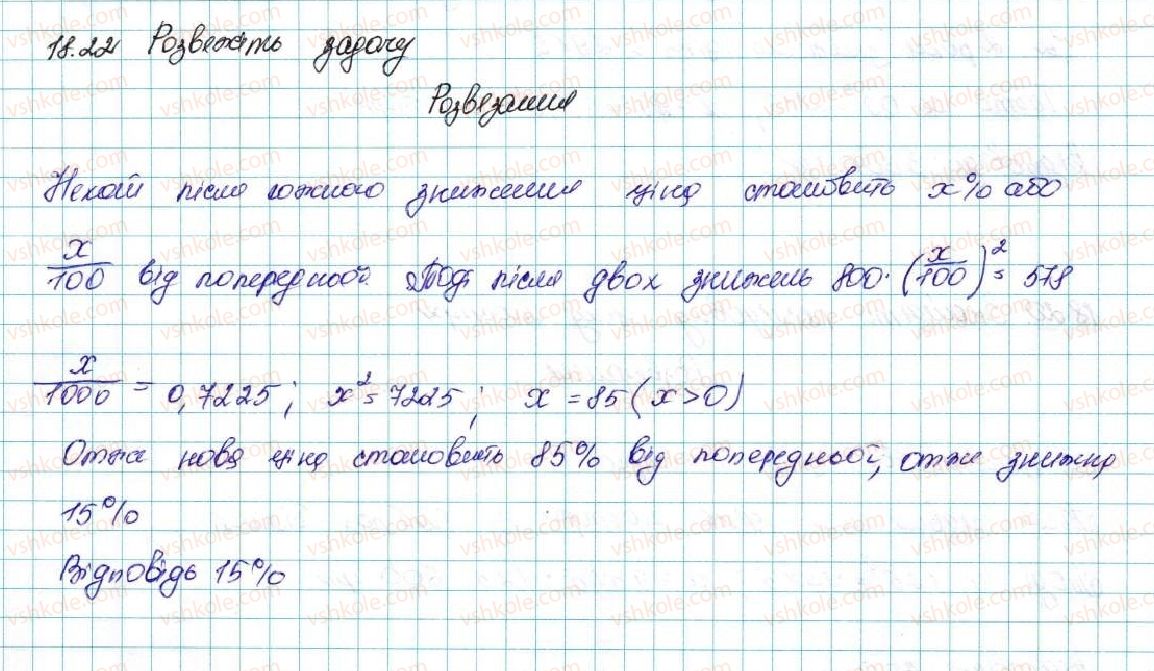 18.22 Розвяжіть задачу
Розвязання
Нехай після кожного зниження ціна становить x% або
x/100 від попередньої. Тоді після двох знижень 800·(x/100)²= 578
x/1000 = 0,7225; x²=7225; x = 85 (x>0)
Отже нова ціна становить 85% від попередньої, отже знижка
15%
Відповідь 15%